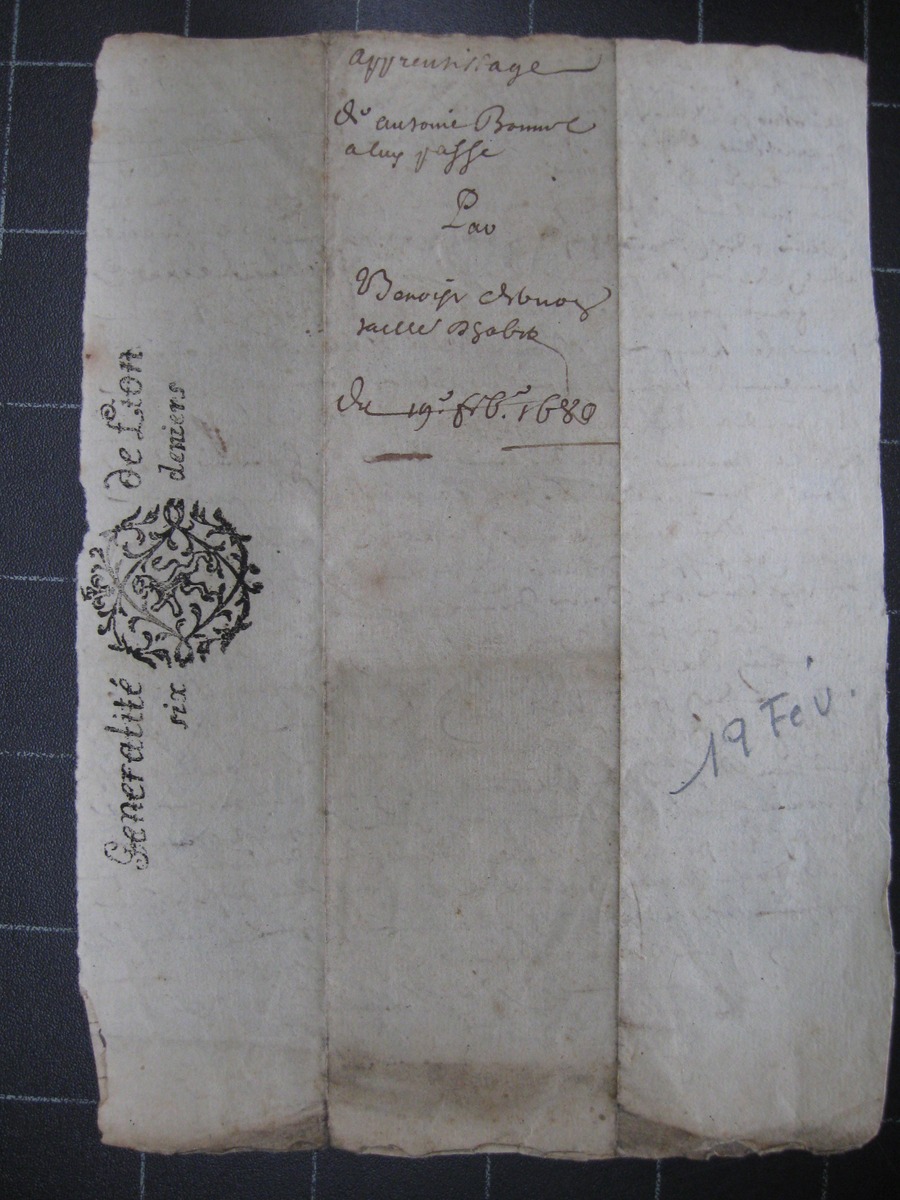 apprentissage
de antoine Bonnet
a luy passé
Par
Benoist
du 19e feb. 1680
Generalité de Lion
six deniers
19 Fév.